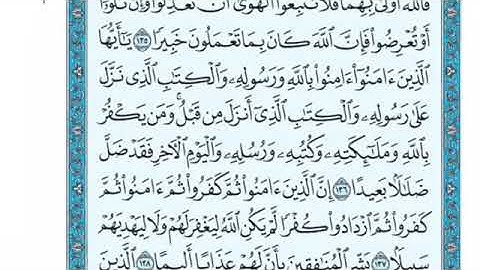 فَٱللَّهُ أَوۡلَىٰ بِهِمَاۖ فَلَا تَتَّبِعُواْ ٱلۡهَوَىٰٓ أَن تَعۡدِلُواْۚ وَإِن تَلۡوُۥٓاْ
أَوۡ تُعۡرِضُواْ فَإِنَّ ٱللَّهَ كَانَ بِمَا تَعۡمَلُونَ خَبِيرٗا ١٣٥ يَٰٓأَيُّهَا
ٱلَّذِينَ ءَامَنُوٓاْ ءَامِنُواْ بِٱللَّهِ وَرَسُولِهِۦ وَٱلۡكِتَٰبِ ٱلَّذِي نَزَّلَ
عَلَىٰ رَسُولِهِۦ وَٱلۡكِتَٰبِ ٱلَّذِيٓ أَنزَلَ مِن قَبۡلُۚ وَمَن يَكۡفُرۡ
بِٱللَّهِ وَمَلَٰٓئِكَتِهِۦ وَكُتُبِهِۦ وَرُسُلِهِۦ وَٱلۡيَوۡمِ ٱلۡأٓخِرِ فَقَدۡ ضَلَّ
ضَلَٰلَۢا بَعِيدًا ١٣٦ إِنَّ ٱلَّذِينَ ءَامَنُواْ ثُمَّ كَفَرُواْ ثُمَّ ءَامَنُواْ ثُمَّ
كَفَرُواْ ثُمَّ ٱزۡدَادُواْ كُفۡرٗا لَّمۡ يَكُنِ ٱللَّهُ لِيَغۡفِرَ لَهُمۡ وَلَا لِيَهۡدِيَهُمۡ
سَبِيلَۢا ١٣٧ بَشِّرِ ٱلۡمُنَٰفِقِينَ بِأَنَّ لَهُمۡ عَذَابًا أَلِيمًا ١٣٨ ٱلَّذِينَ